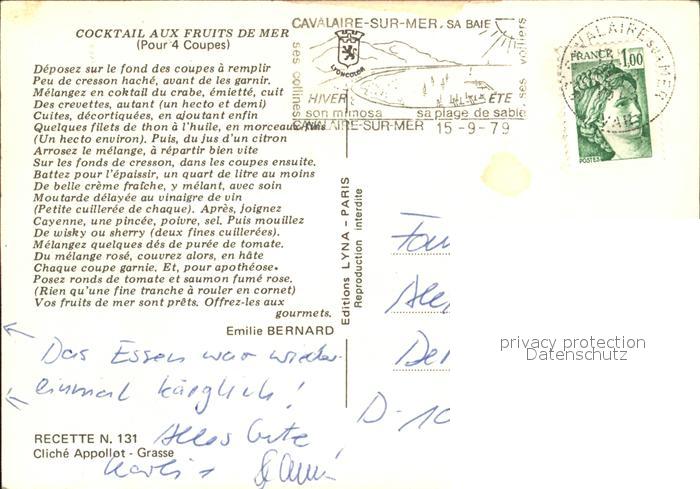 COCKTAIL AUX FRUITS DE MER
(Pour 4 Coupes)
Déposez sur le fond des coupes à remplir
Peu de cresson haché, avant de les garnir.
Mélangez en coktail du crabe, émietté, cuit
Des crevettes, autant (un hecto et demi)
Cuites, décortiquées, en ajoutant enfin
Quelques filets de thon à l'huile, en morceaux fins
(Un hecto environ). Puis, du jus d'un citron
Arrosez le mélange, à répartir bien vite
Sur les fonds de cresson, dans les coupes ensuite.
Battez pour l'épaissir, un quart de litre au moins
De belle crème fraîche, y mélant, avec soin
Moutarde délayée au vinaigre de vin
(Petite cuillerée de chaque). Après, joignez
Cayenne, une pincée, poivre, sel. Puis mouillez
De wisky ou sherry (deux fines cuillerées).
Mélangez quelques dés de purée de tomate.
Du mélange rosé, couvrez alors, en hâte
Chaque coupe garnie. Et, pour apothéose.
Posez ronds de tomate et saumon fumé rose.
(Rien qu'une fine tranche à rouler en cornet)
Vos fruits de mer sont prêts. Offrez-les aux
gourmets.
Emilie BERNARD
Das Essen war wieder
einmal kärglich!
Alles Gute
RECETTE N. 131
Cliché Appollot - Grasse
Editions LYNA - PARIS
Reproduction interdite
CAVALAIRE-SUR-MER. SA BAIE
ses collines
ses voiliers
HIVER
ÉTÉ
son mimosa
sa plage de sable
CAVALAIRE-SUR-MER 15-9-79
FRANCE 1,00
POSTES
D-10
privacy protection
Datenschutz